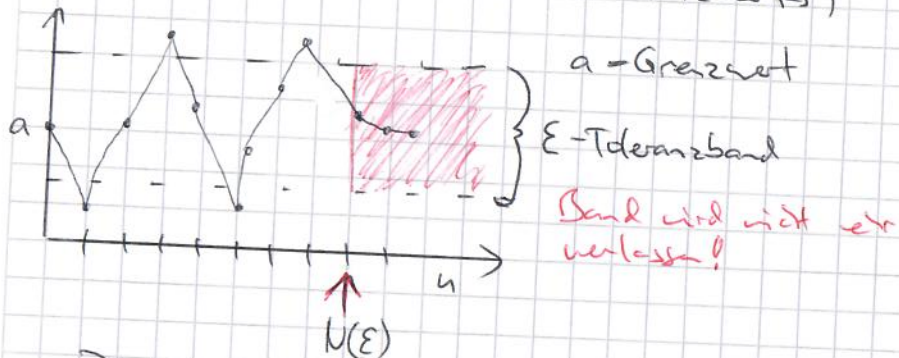 a - Grenzwert
a
ε-Toleranzband
Band wird nicht
verlassen!
n
N(ε)